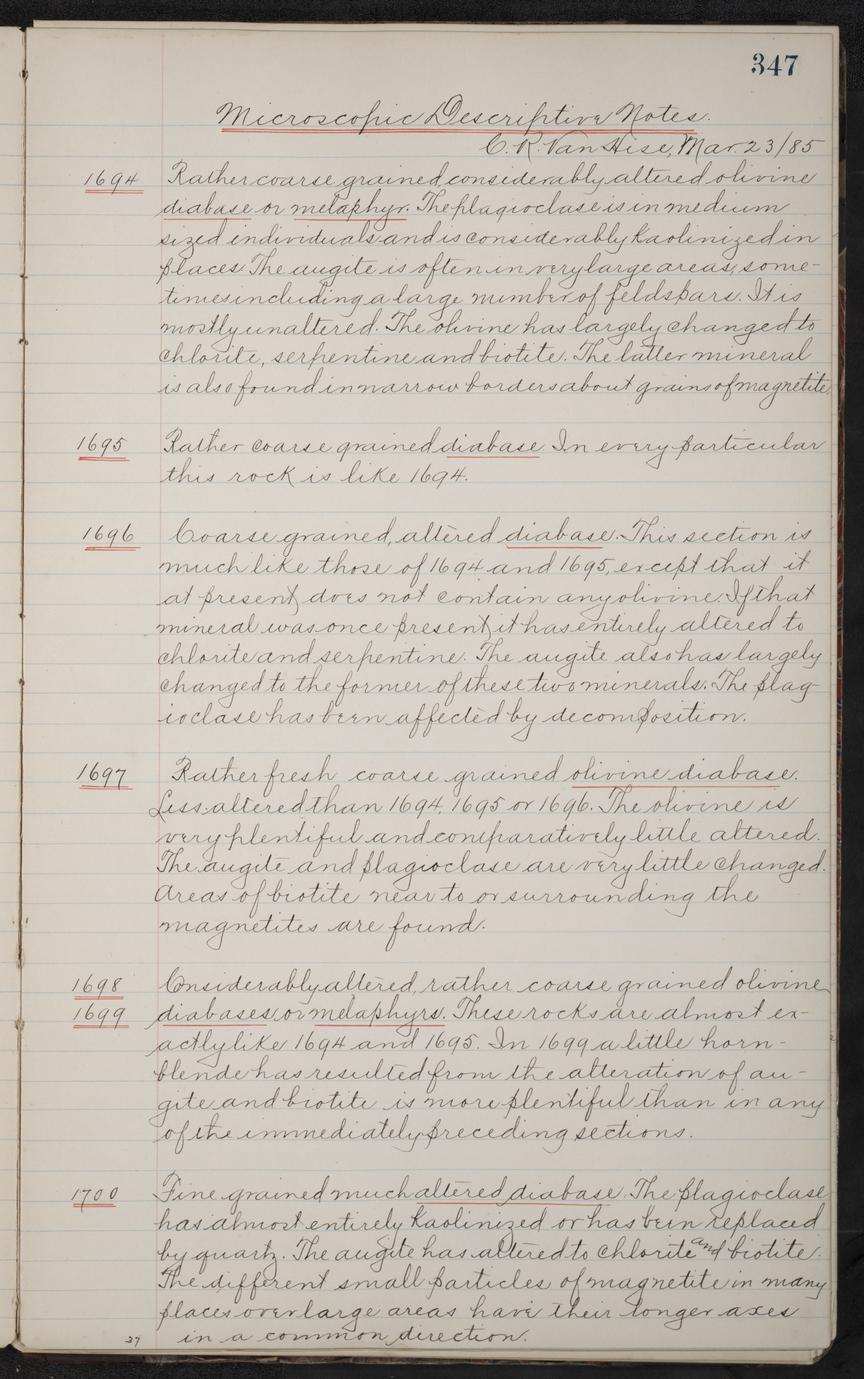 347
Microscopic Descriptive Notes.
C. R. Van Hise, Mar 23/85
1694 Rather coarse grained, considerably altered olivine
diabase or melaphyr. The plagioclase is in medium
sized individuals and is considerably kaolinized in
places. The augite is often in very large areas, some-
times including a large number of feldspars. It is
mostly unaltered. The olivine has largely changed to
chlorite, serpentine and biotite. The latter mineral
is also found in narrow borders about grains of magnetite.
1695 Rather coarse grained diabase. In every particular
this rock is like 1694.
1696 Coarse grained, altered diabase. This section is
much like those of 1694 and 1695, except that it
at present, does not contain any olivine. If that
mineral was once present, it has entirely altered to
chlorite and serpentine. The augite also has largely
changed to the former of these two minerals. The plag-
ioclase has been affected by decomposition.
1697 Rather fresh coarse grained olivine diabase.
Less altered than 1694, 1695 or 1696. The olivine is
very plentiful and comparatively little altered.
The augite and plagioclase are very little changed.
Areas of biotite near to or surrounding the
magnetites are found.
1698 Considerably altered, rather coarse grained olivine
1699 diabases, or melaphyrs. These rocks are almost ex-
actly like 1694 and 1695. In 1699 a little horn-
blende has resulted from the alteration of au-
gite and biotite is more plentiful than in any
of the immediately preceding sections.
1700 Fine grained much altered diabase. The plagioclase
has almost entirely kaolinized or has been replaced
by quartz. The augite has altered to chlorite and biotite.
The different small particles of magnetite in many
places over large areas have their longer axes
37 in a common direction.